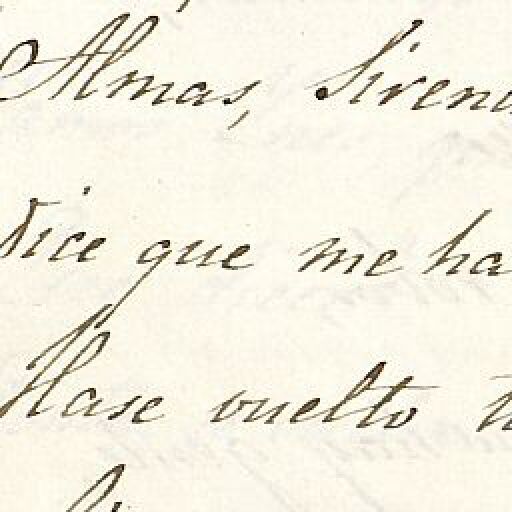 Almas, Siren
Dice que me ha
Hase vuelto